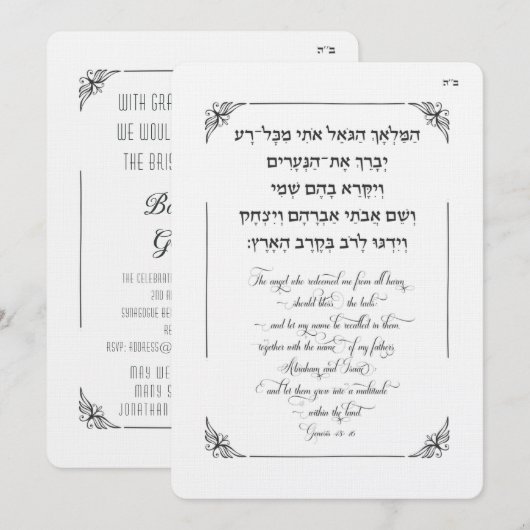 ב״ה
WITH GRA
WE WOULD
THE BRIS
Ba
G
THE CELEBRAT
2ND A
SYNAGOGUE BE
RE
RSVP: ADDRESS@
MAY WE
MANY S
JONATHAN
ב״ה
הַמַּלְאָךְ הַגֹּאֵל אֹתִי מִכָּל־רָע
יְבָרֵךְ אֶת־הַנְּעָרִים
וְיִקָּרֵא בָהֶם שְׁמִי
וְשֵׁם אֲבֹתַי אַבְרָהָם וְיִצְחָק
וְיִדְגּוּ לָרֹב בְּקֶרֶב הָאָרֶץ׃
The angel who redeemed me from all harm
should bless the lads:
and let my name be recalled in them
together with the name of my fathers
Abraham and Isaac
and let them grow into a multitude
within the land.
Genesis 48: 16